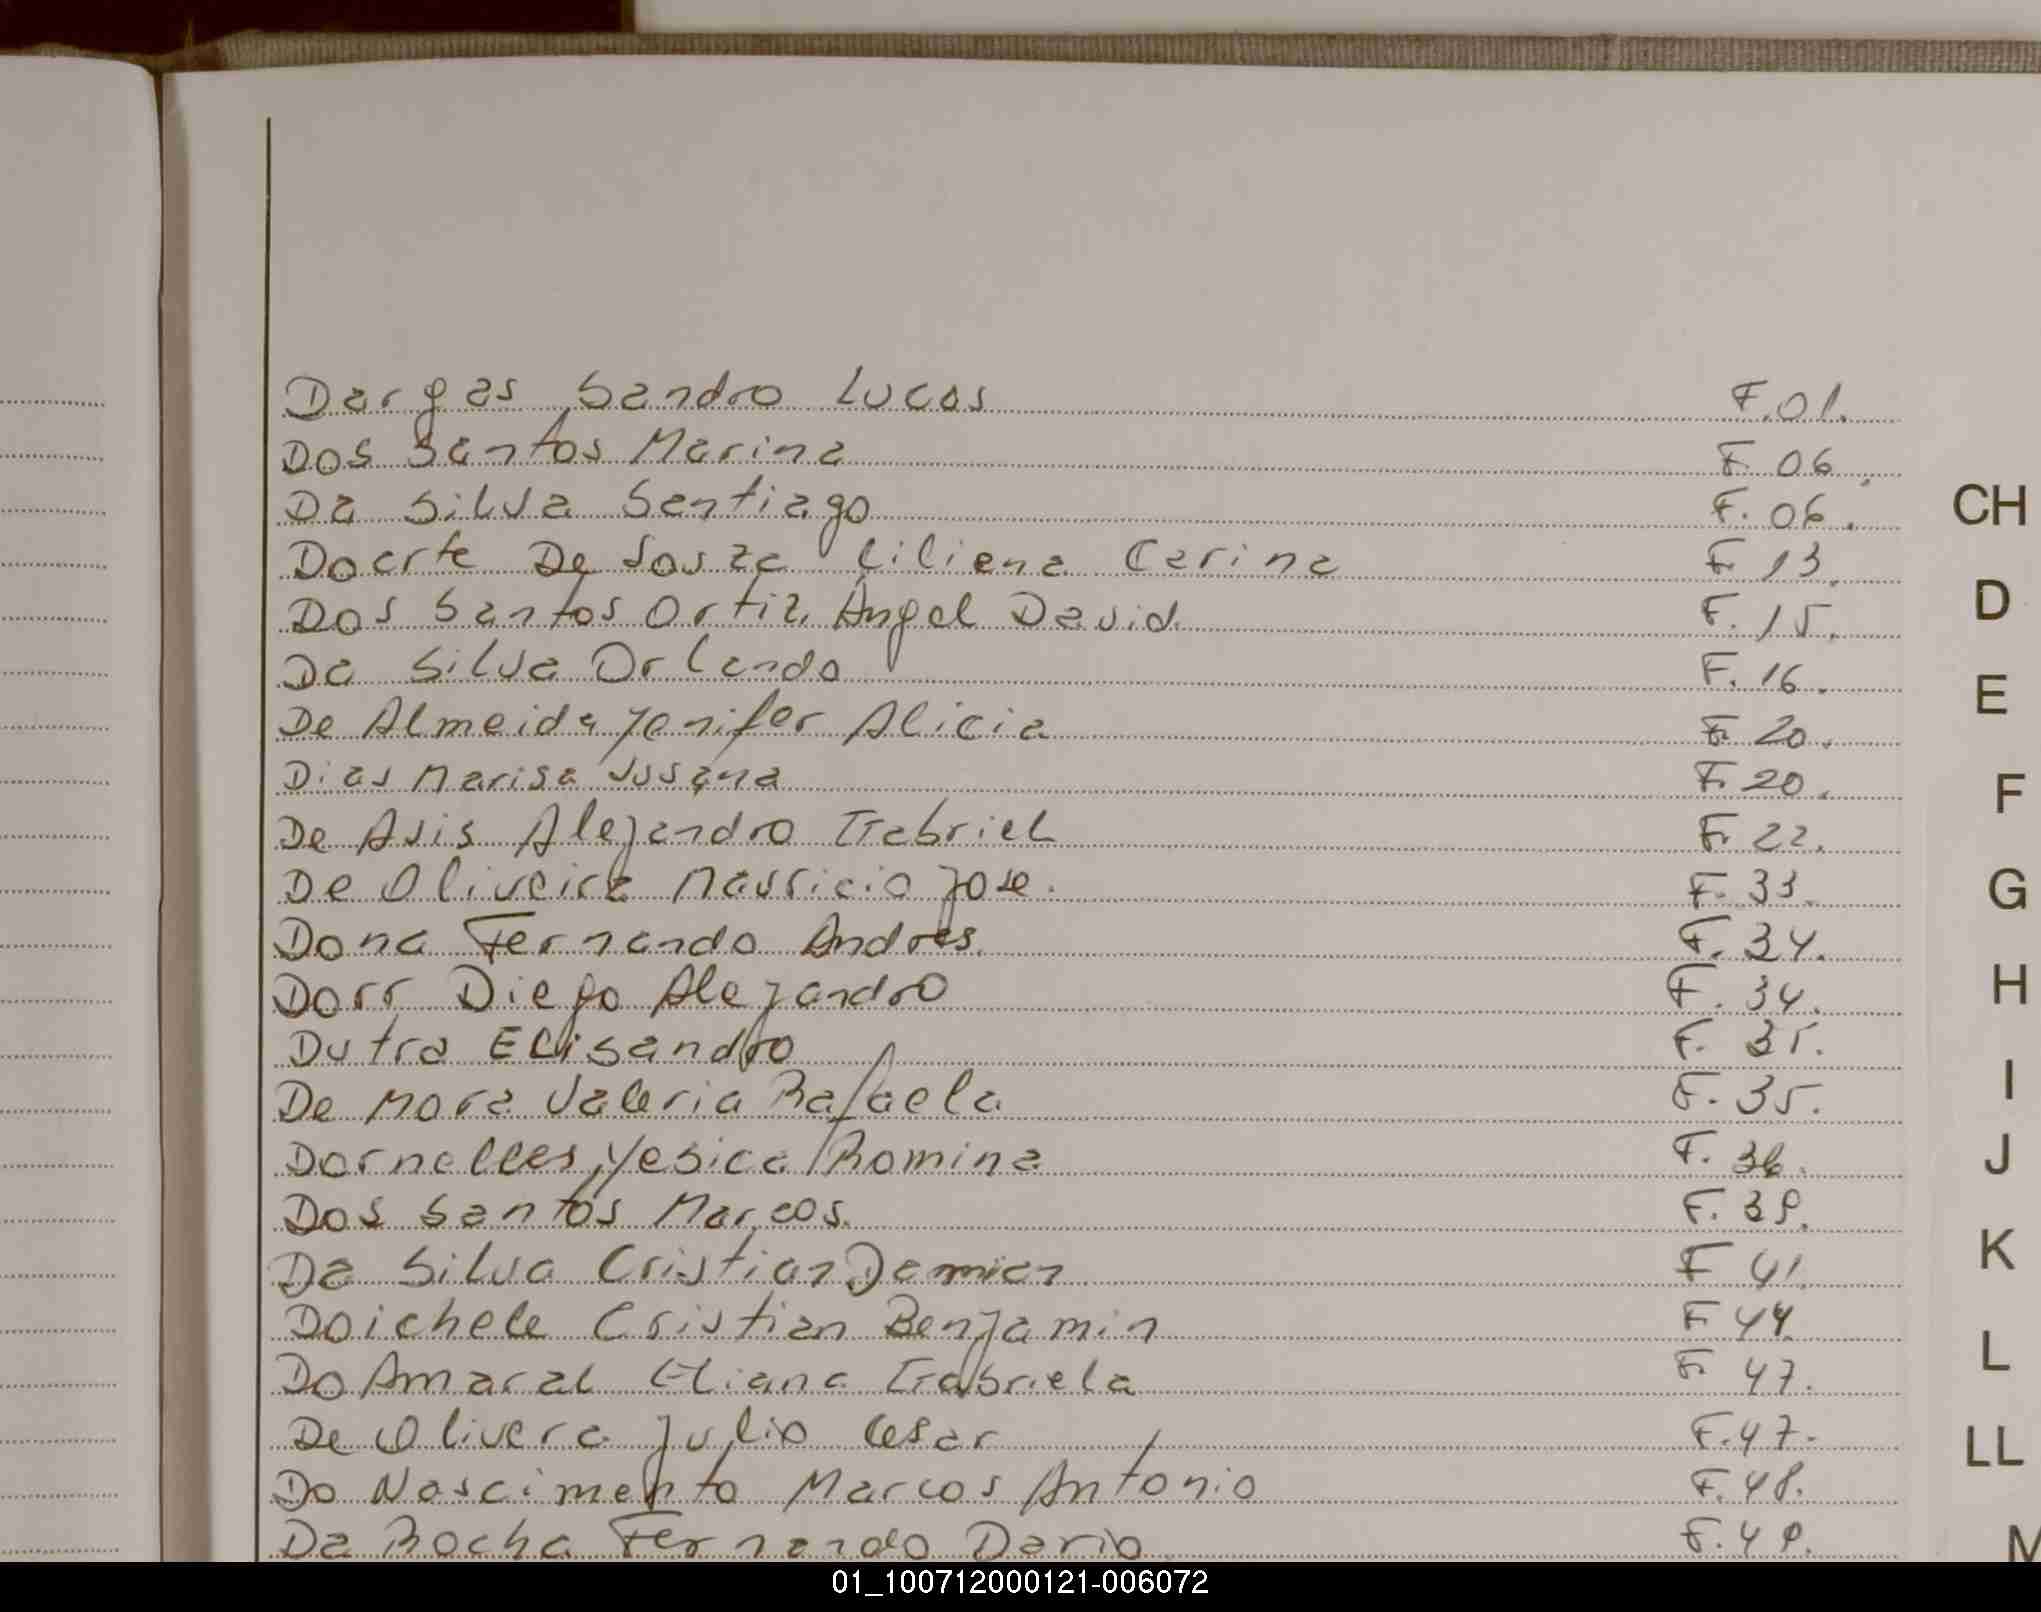 Dargas Sandro Lucas F.01.
Dos Santos Marina F. 06.
Da Silva Santiago F. 06.
CH
Doarte De Souza Liliana Carina F. 13.
Dos Santos Ortiz Angel David. F. 15.
D
Da Silva Orlando F. 16.
E
De Almeida Yenifer Alicia F. 20.
Dias Marisa Susana F. 20.
F
De Asis Alejandro Gabriel F. 22.
De Oliveira Mauricio Jose. F. 33.
G
Dona Fernando Andres. F. 34.
Dorr Diego Alejandro F. 34.
H
Dutra Elisandro F. 35.
De Mora Valeria Rafaela F. 35.
I
Dornelles, Yesica Romina F. 36.
J
Dos Santos Marcos. F. 39.
Da Silva Cristian Damian F 41.
K
Doichele Cristian Benjamin F 44.
Do Amaral Eliana Gabriela F 47.
L
De Olivera Julio Cesar F.47.
LL
Do Nascimento Marcos Antonio F.48.
Da Rocha Fernando Dario F.49.
M
01_100712000121-006072